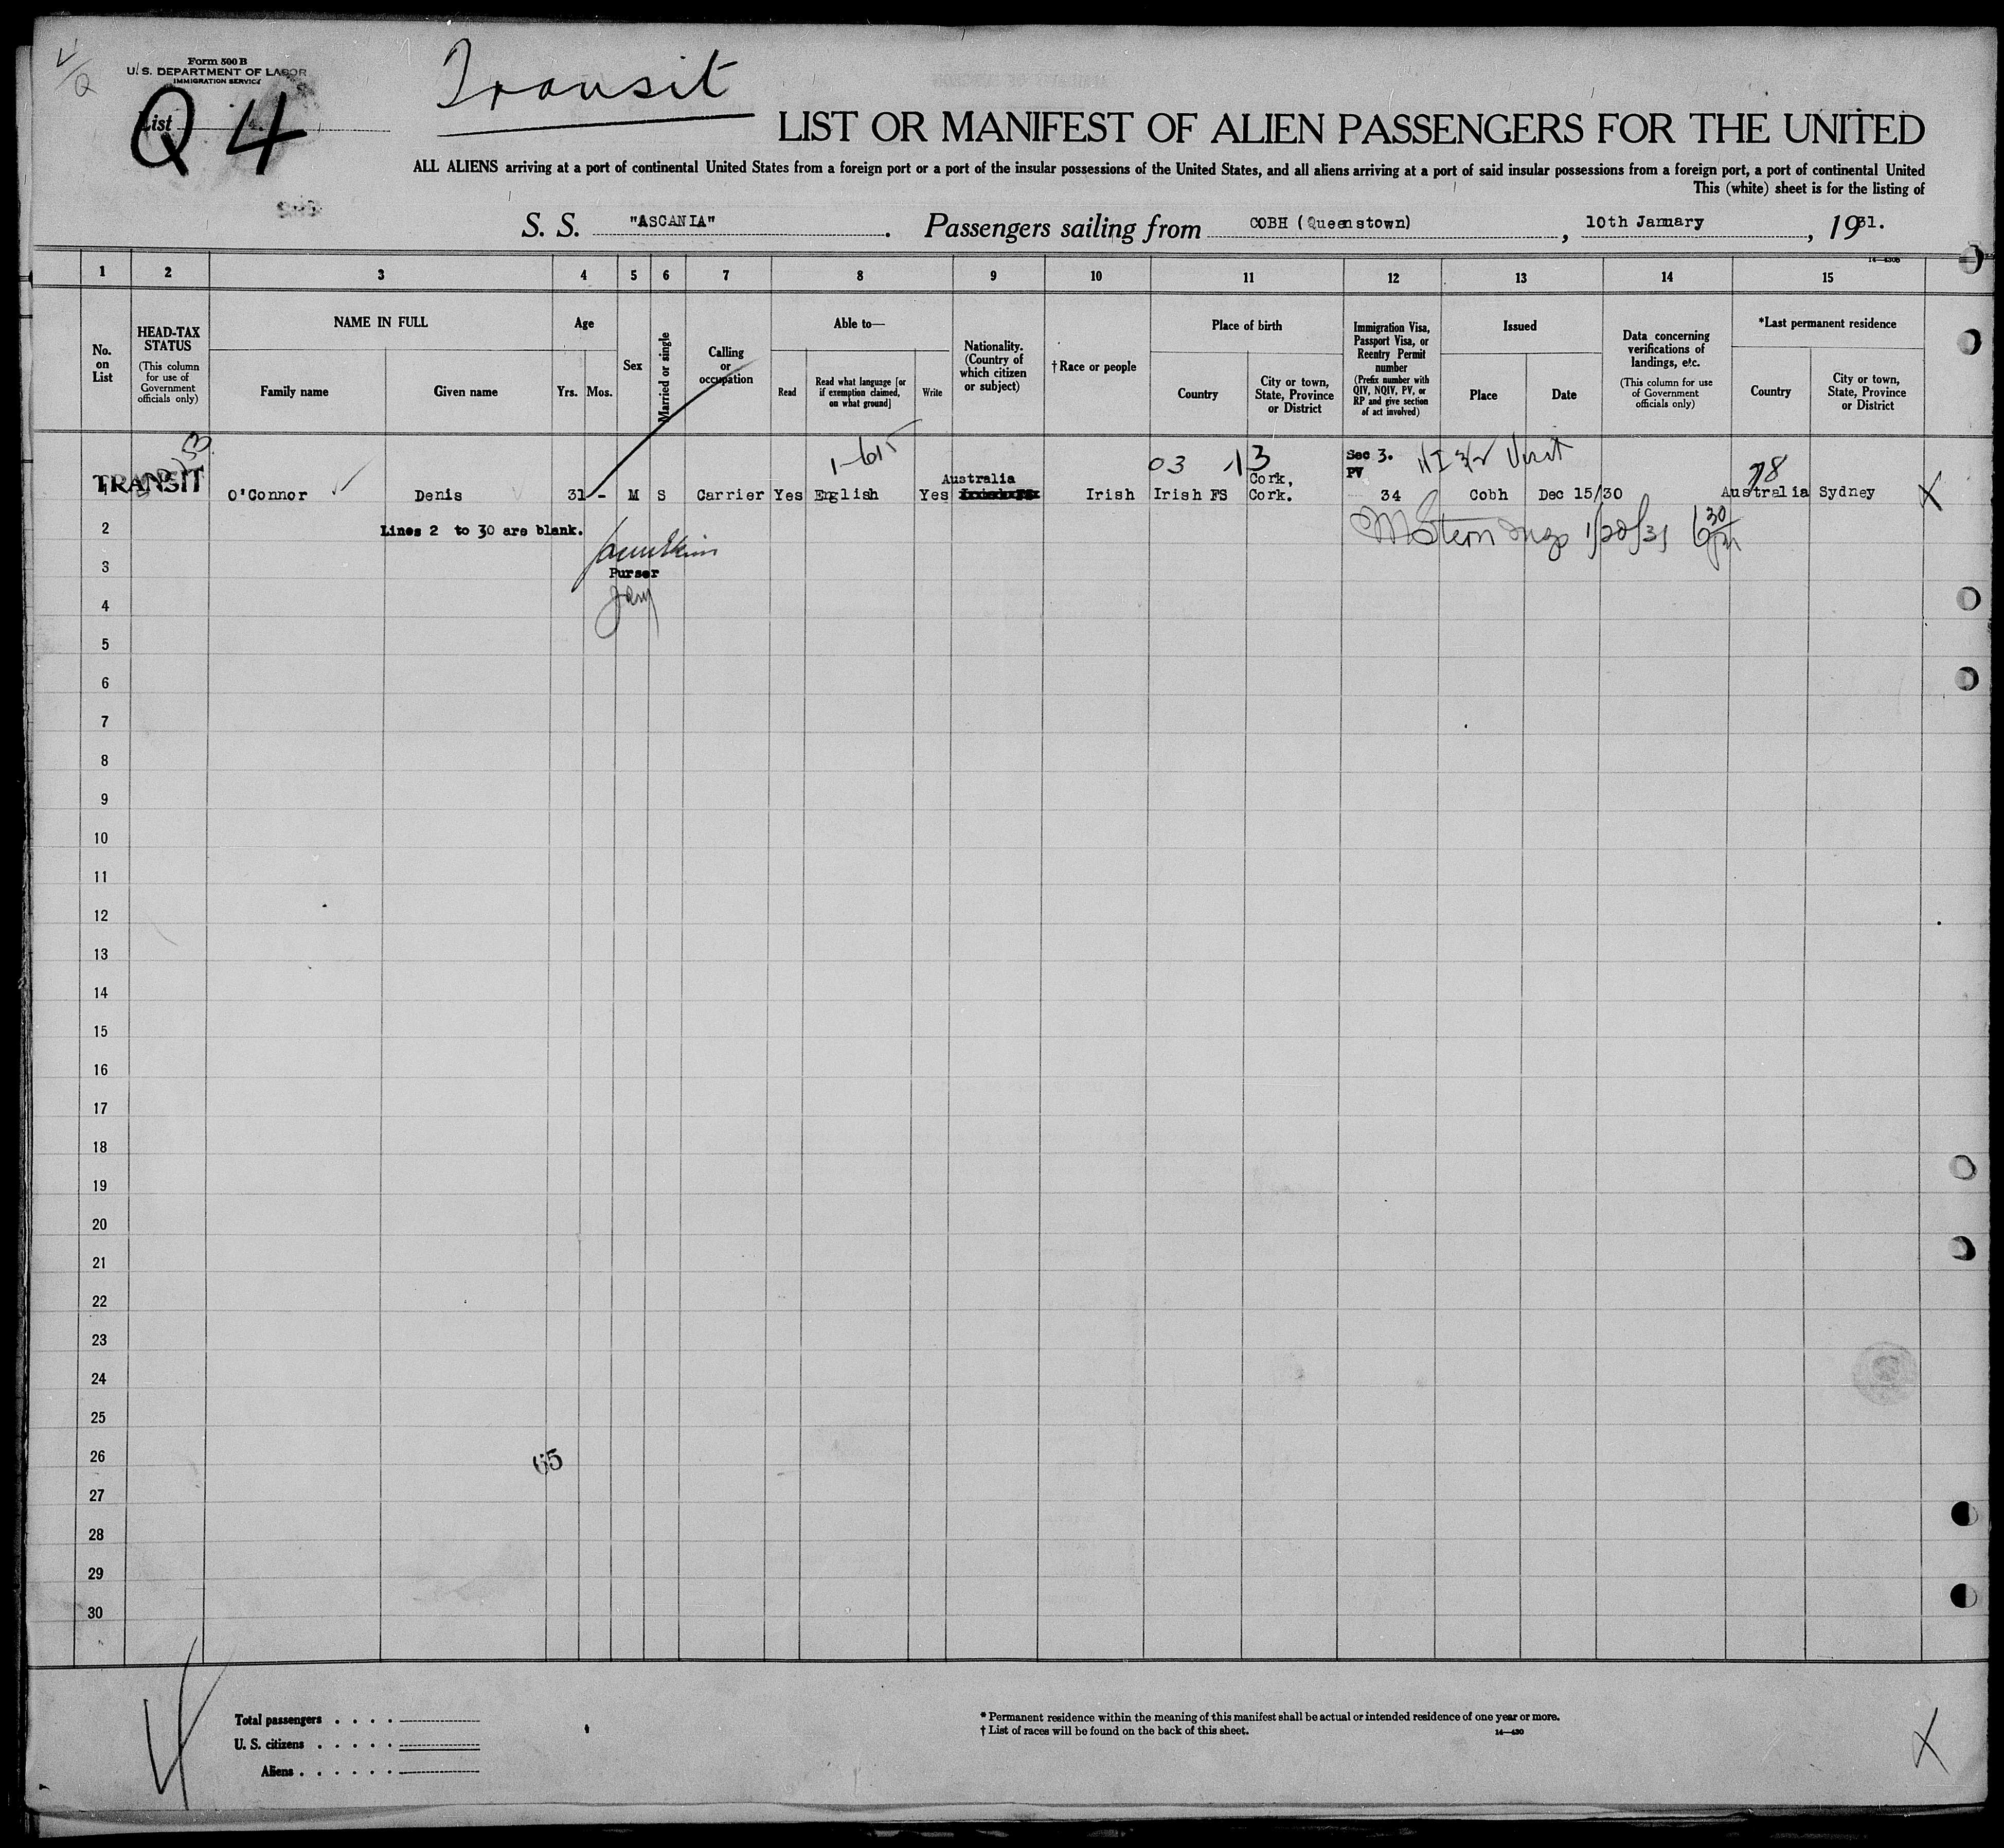 Form 500 B
U. S. DEPARTMENT OF LABOR
IMMIGRATION SERVICE
List
Q 4
Transit
LIST OR MANIFEST OF ALIEN PASSENGERS FOR THE UNITED
ALL ALIENS arriving at a port of continental United States from a foreign port or a port of the insular possessions of the United States, and all aliens arriving at a port of said insular possessions from a foreign port, a port of continental United
This (white) sheet is for the listing of
S. S. "ASCANIA". Passengers sailing from COBH (Queenstown), 10th January, 1931.
14—430B
1 2 3 4 5 6 7 8 9 10 11 12 13 14 15
No. on List
HEAD-TAX STATUS
(This column for use of Government officials only)
NAME IN FULL
Family name
Given name
Age
Yrs. Mos.
Sex
Married or single
Calling or occupation
Able to—
Read
Read what language [or if exemption claimed, on what ground]
Write
Nationality. (Country of which citizen or subject)
†Race or people
Place of birth
Country
City or town, State, Province or District
Immigration Visa, Passport Visa, or Reentry Permit number
(Prefix number with QIV, NQIV, PV, or RP and give section of act involved)
Issued
Place
Date
Data concerning verifications of landings, etc.
(This column for use of Government officials only)
*Last permanent residence
Country
City or town, State, Province or District
1-615
03 13
Sec 3.
PV
78
Australia
Cork,
TRANSIT O'Connor Denis 31 - M S Carrier Yes English Yes Irish Irish FS Cork. 34 Cobh Dec 15/30 Australia Sydney X
2 Lines 2 to 30 are blank.
1/20/31 6 30
3 Purser
4
5
6
7
8
9
10
11
12
13
14
15
16
17
18
19
20
21
22
23
24
25
26
65
27
28
29
30
Total passengers . . . .
U. S. citizens . . . . .
Aliens . . . . . .
* Permanent residence within the meaning of this manifest shall be actual or intended residence of one year or more.
† List of races will be found on the back of this sheet.
14—430
X